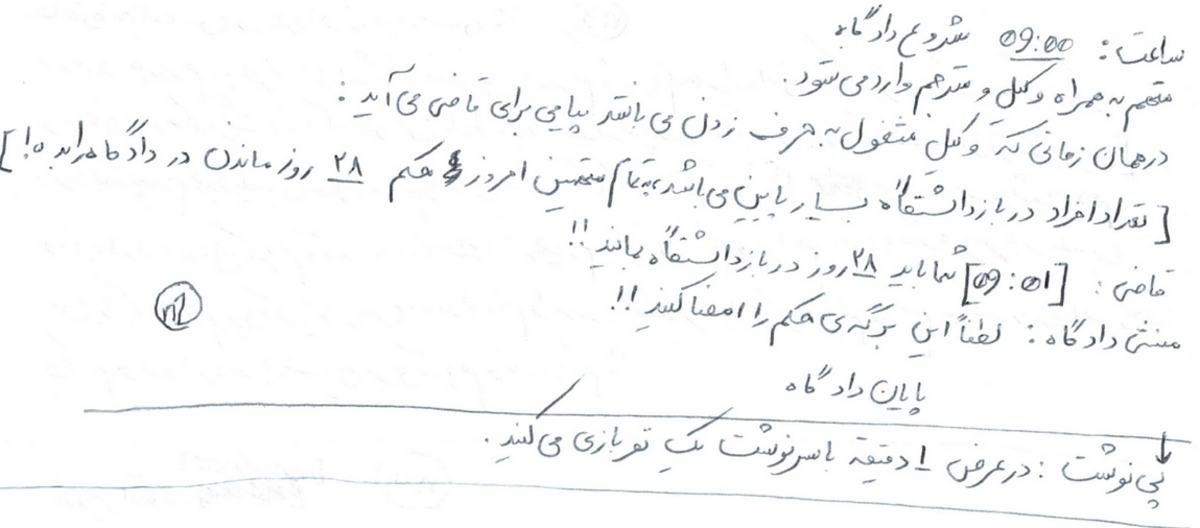 ساعت: 09:00 شروع دادگاه
متهم به همراه وکیل و مترجم وارد می شود.
درهمان زمانی که وکیل مشغول به حرف زدن می باشد پیامی برای قاضی می آید:
[تعداد افراد در بازداشتگاه بسیار پایین می باشد، به تمام متهمین امروز حکم ۲۸ روز ماندن در دادگاه را بده!]
قاضی: [09:01] شما باید ۲۸ روز در بازداشتگاه بمانید!!
منشی دادگاه: لطفاً این برگه ی حکم را امضا کنید!!
پایان دادگاه
پی نوشت: در عرض ۱ دقیقه با سرنوشت یک نفر بازی می کنند.